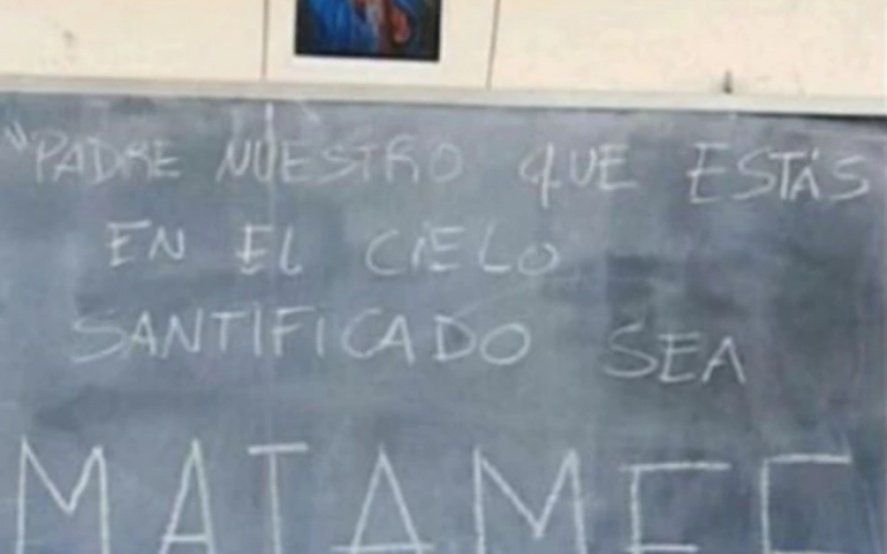 "PADRE NUESTRO QUE ESTÁS
EN EL CIELO
SANTIFICADO SEA
MATAMEE